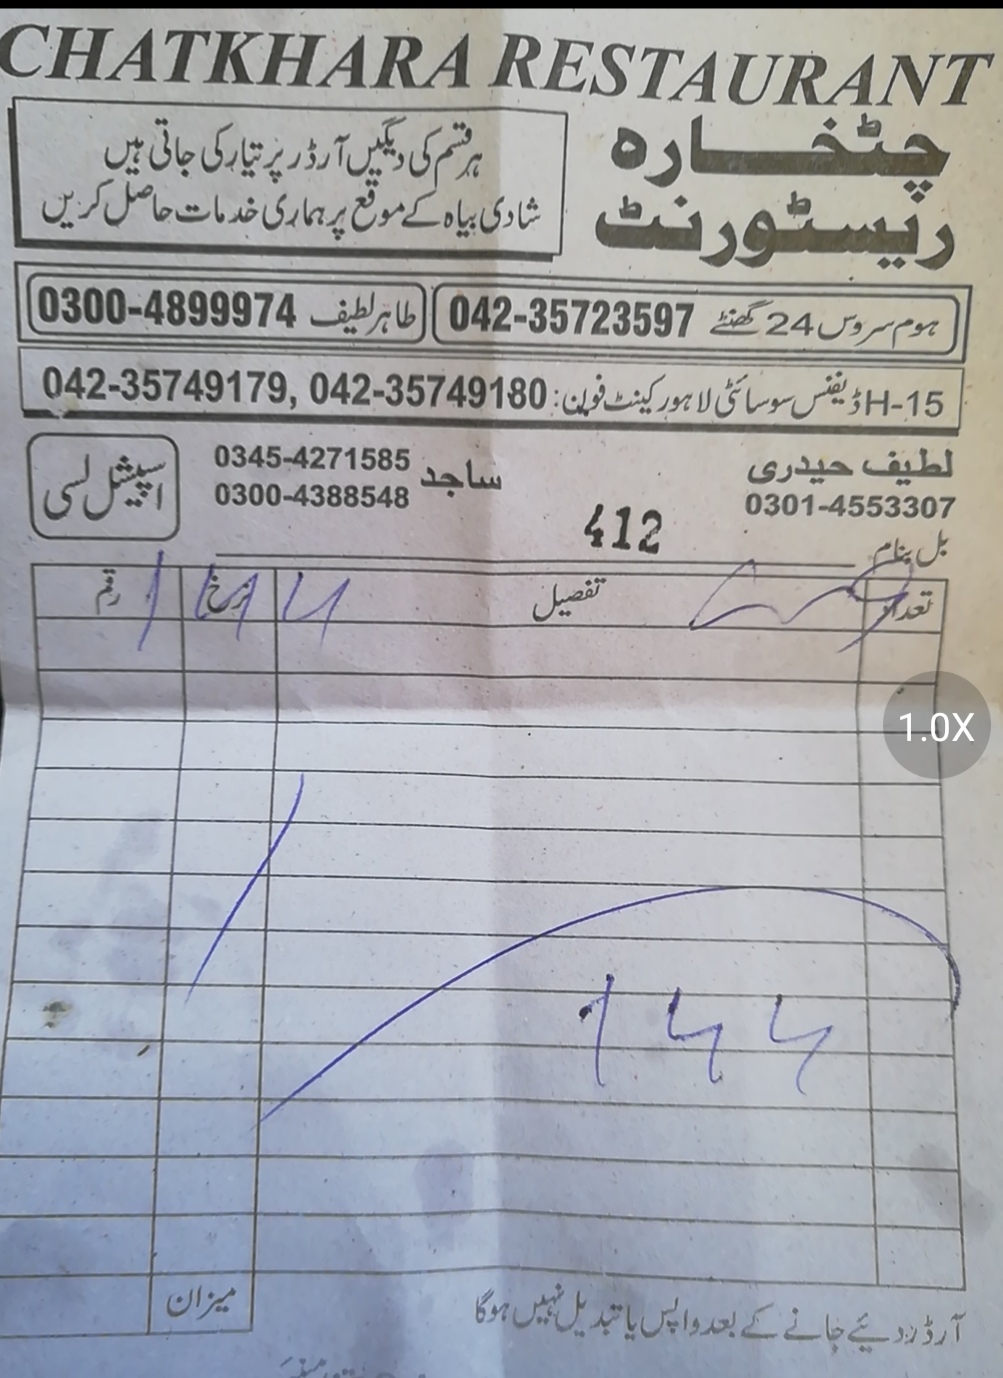 CHATKHARA RESTAURANT
چٹخارہ
ریسٹورنٹ
ہر قسم کی دیگیں آرڈر پر تیار کی جاتی ہیں
شادی بیاہ کے موقع پر ہماری خدمات حاصل کریں
ہوم سروس 24 گھنٹے 042-35723597
طاہر لطیف 0300-4899974
H-15 ڈیفنس سوسائٹی لاہور کینٹ فون: 042-35749179, 042-35749180
لطیف حیدری
0301-4553307
ساجد 0345-4271585
0300-4388548
اسپیشل لسی
412
بل بنام
تعداد تفصیل نرخ رقم
میزان
آرڈر دئیے جانے کے بعد واپس یا تبدیل نہیں ہوگا
1.0X